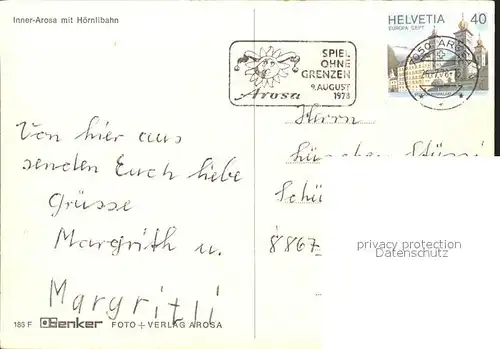 Inner-Arosa mit Hörnlibahn
SPIEL
OHNE
GRENZEN
9. AUGUST
1978
Arosa
HELVETIA 40
EUROPA CEPT
Von hier aus
senden Euch liebe
Grüsse
Margrith u.
Margritli
Herrn
8867
privacy protection
Datenschutz
185 F Denker FOTO + VERLAG AROSA